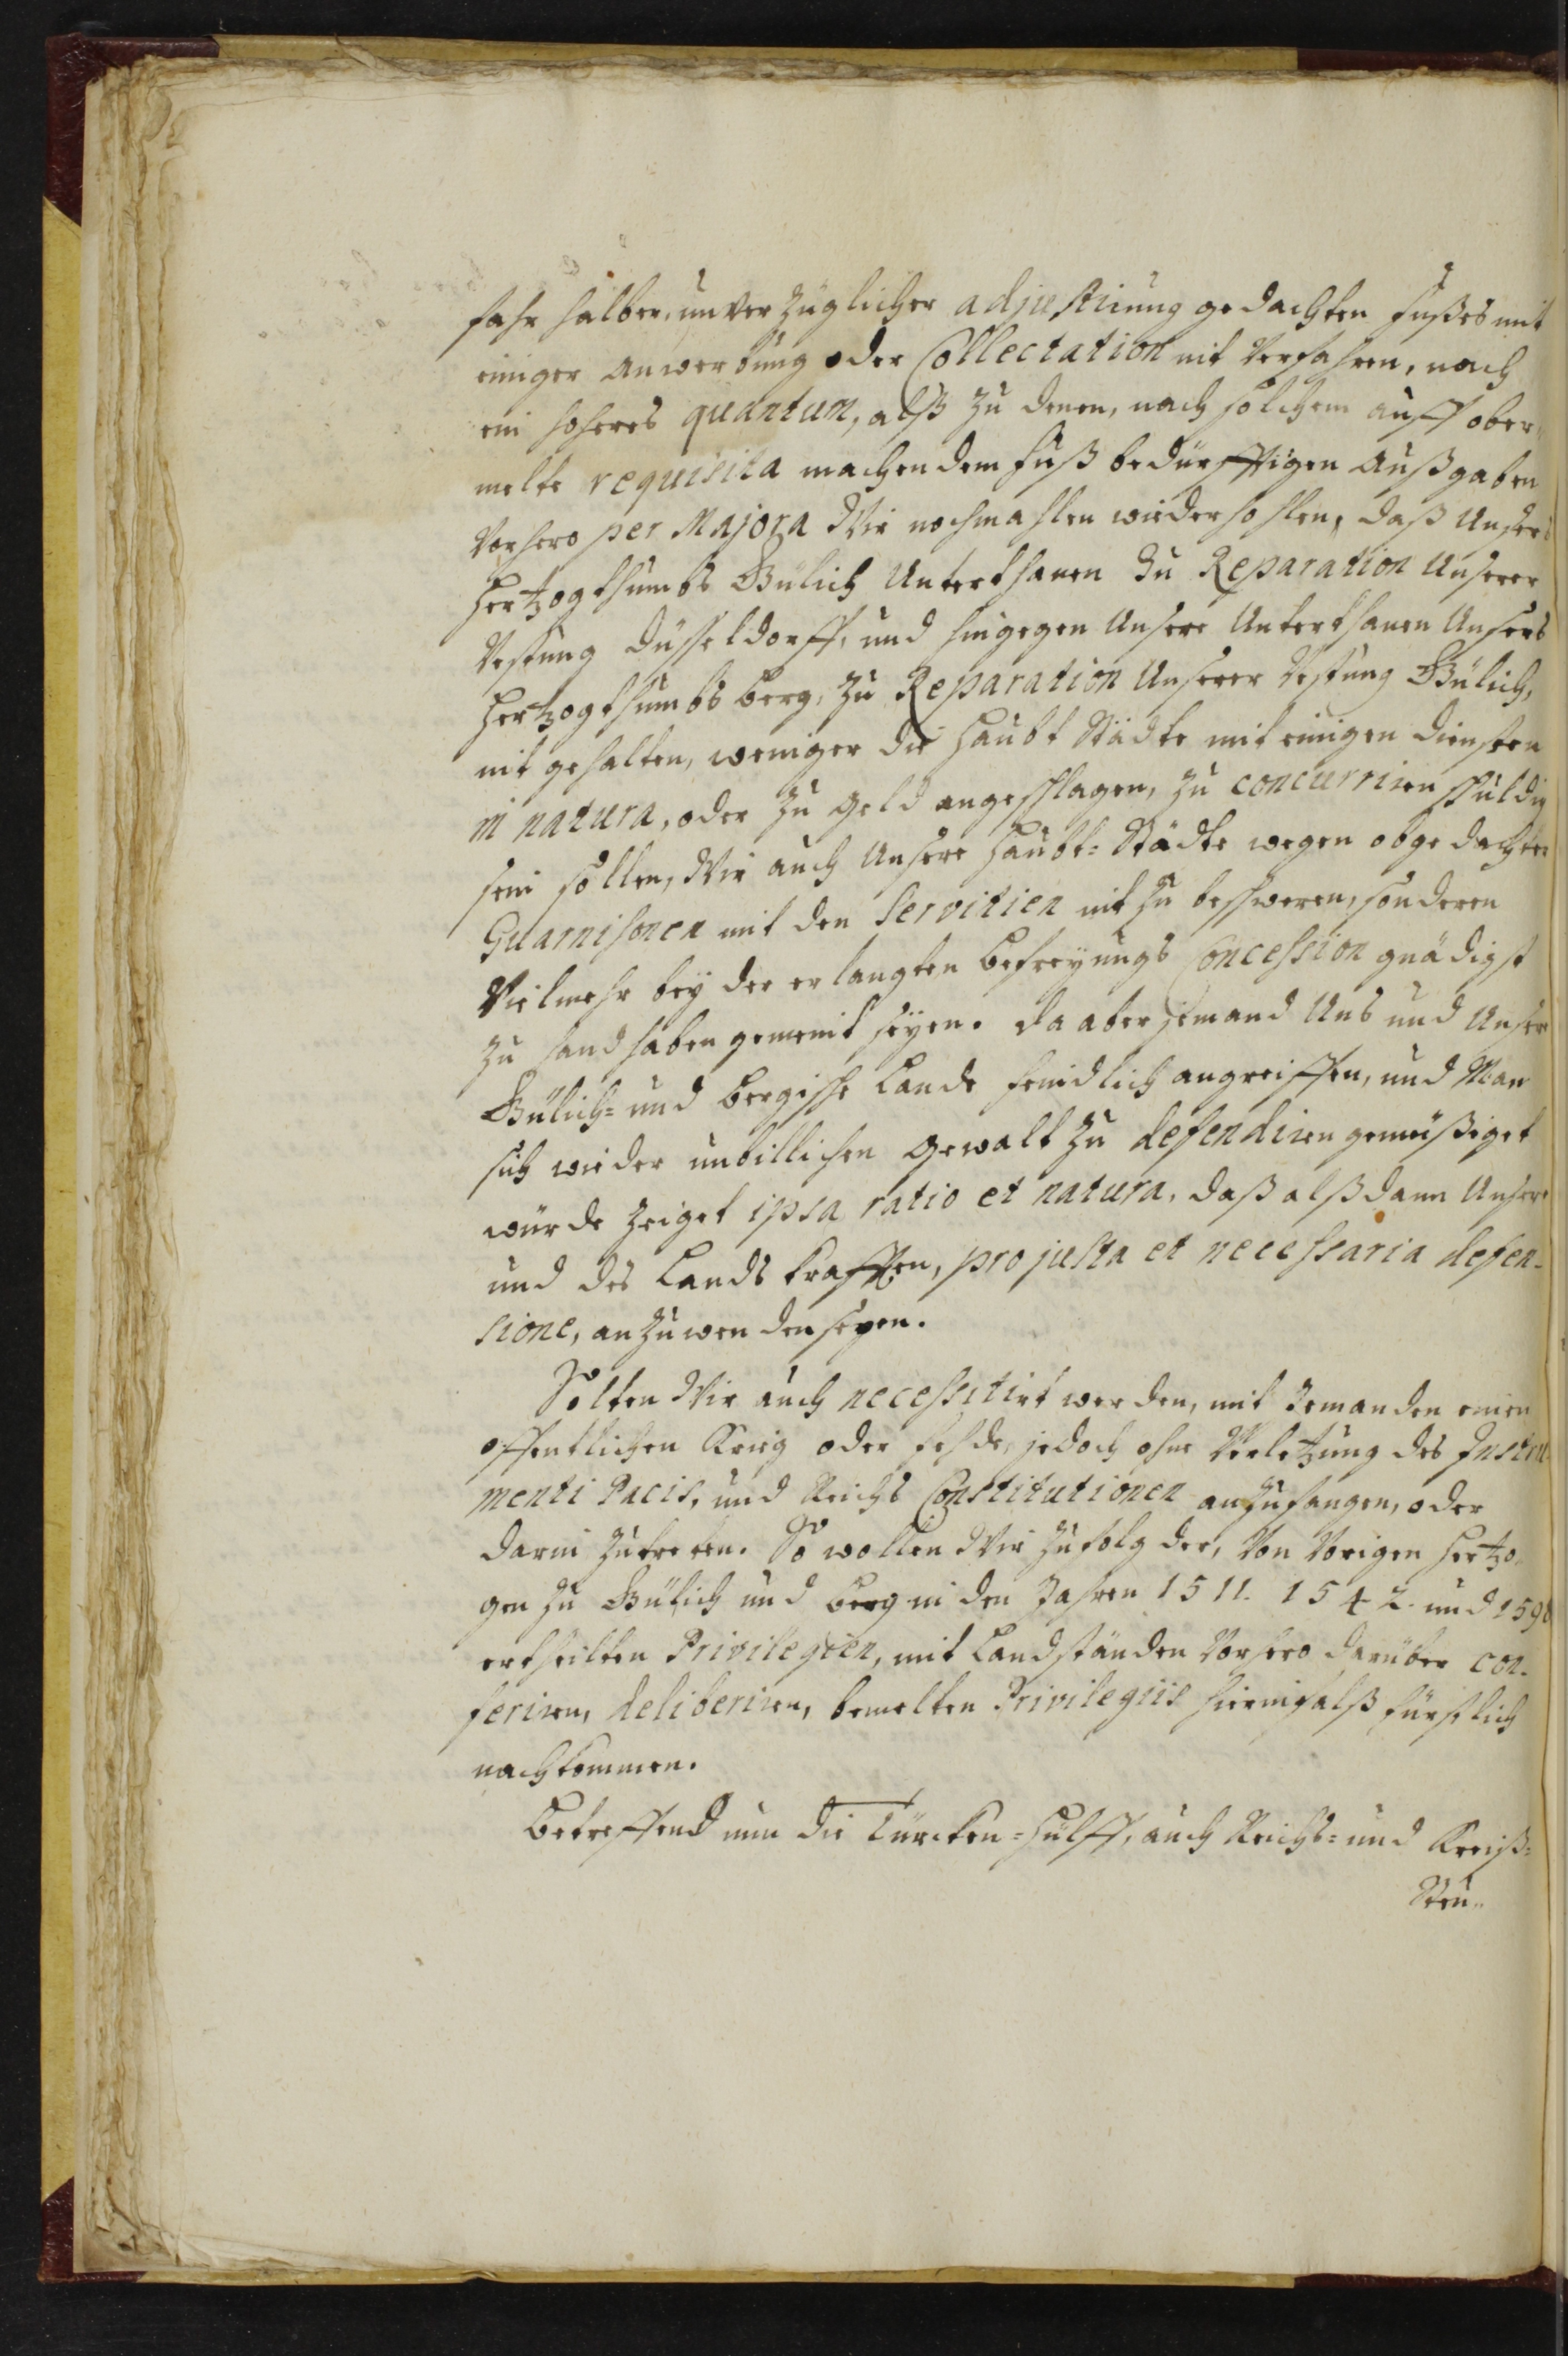 fahr halber, unverzüglicher adjustirung gedachten fußes mit
einiger anwerbung oder Collectation nit verfahren, noch
ein höheres quantum, alß zu denen, nach solchem auff ober„
melte requisita machendem fuß bedürfftigen Außgaben
vorhero per Majora Wir nochmahlen wiederhohlen, daß Unsers
Hertzogthumbs Gülich Unterthanen zu Reparation Unserer
Vestung Düsseldorff, und hingegen Unsere Unterthanen Unsers
Hertzogthumbs Berg, zu Reparation Unserer Vestung Gülich,
nit gehalten, weniger die Haubt Städte mit einigen Diensten
in natura, oder zu geld angeschlagen, zu concurriren schuldig
sein sollen, Wir auch Unsere Haubt= Städte wegen obgedachter
Guarnisonen mit den Servitien nit zu beschweren, sonderen
Vielmehr bey der erlangten befreyungs Concession gnädigst
zu handhaben gemeint seyen. Da aber jemand Uns und Unsere
Gülich= und Bergische Lande feindlich angreiffen, und Man
sich wieder unbillichen gewalt zu defendiren gemüßiget
würde zeiget ipsa ratio et natura, daß alßdann Unsere
und des Lands kräfften, pro justa et necessaria defen-
sione, anzuwenden seyen.
Solten Wir auch necessitirt werden, mit Jemanden einen
offentlichen Krieg oder fehde, jedoch ohne Verletzung des Instru
menti Pacis, und Reichs Constitutionen anzufangen, oder
darin zutretten. So wollen Wir zufolg der, von Vorigen Hertzo„
gen zu Gülich und Berg in den Jahren 1511. 1542. und 1598
ertheilten Privilegien, mit Landständen vorhero darüber con-
feriren, deliberiren, bemelten Privilegiis hiernechst fürstlich
nachkommen.
Betreffend nun die Türcken=hülff, auch Reichs= und Kreiß=
Steu„